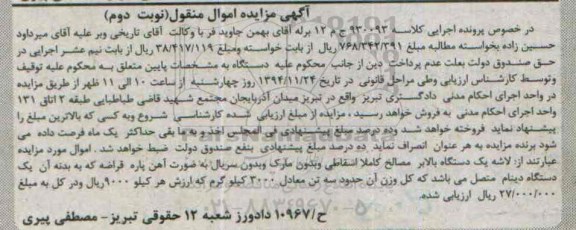 آگهی مزایده اموال منقول(نوبت دوم)
در خصوص پرونده اجرایی کلاسه ۹۳۰۰۹۳ ج م ۱۲ برله آقای بهمن جاوید فر با وکالت آقای تاریخی وبر علیه آقای میرداود
حسین زاده بخواسته مطالبه مبلغ ۷۶۸/۳۴۲/۳۹۱ ریال از بابت خواسته ومبلغ ۳۸/۴۱۷/۱۱۹ ریال از بابت نیم عشر اجرایی در
حق صندوق دولت بعلت عدم پرداخت دین از جانب محکوم علیه دستگاه به مشخصات پایین متعلق به محکوم علیه توقیف
وتوسط کارشناس ارزیابی وطی مراحل قانونی در تاریخ ۱۳۹۴/۱۱/۲۴ روز چهارشنبه از ساعت ۱۰ الی ۱۱ ظهر از طریق مزایده
در واحد اجرای احکام مدنی دادگستری تبریز واقع در تبریز میدان آذربایجان مجتمع شهید قاضی طباطبایی طبقه ۲ اتاق ۱۳۱
واحد اجرای احکام مدنی به فروش خواهد رسید، مزایده از مبلغ ارزیابی شده کارشناسی شروع وبه کسی که بالاترین مبلغ را
پیشنهاد نماید فروخته خواهد شد وده درصد مبلغ پیشنهادی فی المجلس اخذ و به ما بقی حداکثر یک ماه فرصت داده می
شود برنده مزایده به هر عنوان انصراف نماید ده درصد مبلغ پیشنهادی بنفع صندوق دولت ضبط خواهد شد. اموال مورد مزایده
عبارتند از: لاشه یک دستگاه بالابر مصالح کاملا اسقاطی وبدون مارک وبدون سریال به صورت آهن پاره قراضه که به بدنه آن یک
دستگاه دینام متصل می باشد که کل وزن آن حدود سه تن معادل ۳۰۰۰ کیلو گرم که ارزش هر کیلو ۹۰۰۰ریال ودر کل به مبلغ
۲۷/۰۰۰/۰۰۰ ریال ارزیابی شده.
ح/۱۰۹۶۷ دادورز شعبه ۱۲ حقوقی تبریز- مصطفی پیری
۰۲۱-۸۸۳۴۹۶۷۰-۵